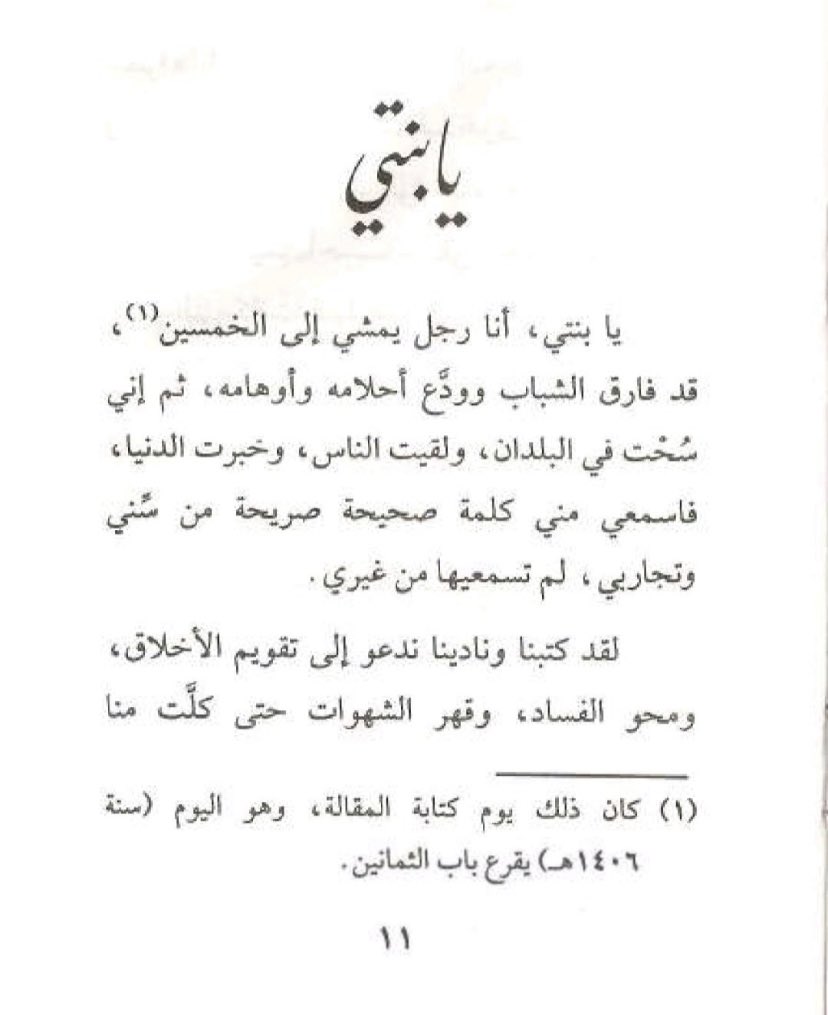 يا بنتي
يا بنتي، أنا رجل يمشي إلى الخمسين(١)،
قد فارق الشباب وودَّع أحلامه وأوهامه، ثم إني
سُحْت في البلدان، ولقيت الناس، وخبرت الدنيا،
فاسمعي مني كلمة صحيحة صريحة من سِّني
وتجاربي، لم تسمعيها من غيري.
لقد كتبنا ونادينا ندعو إلى تقويم الأخلاق،
ومحو الفساد، وقهر الشهوات حتى كلَّت منا
(١) كان ذلك يوم كتابة المقالة، وهو اليوم (سنة
١٤٠٦هـ) يقرع باب الثمانين.
١١